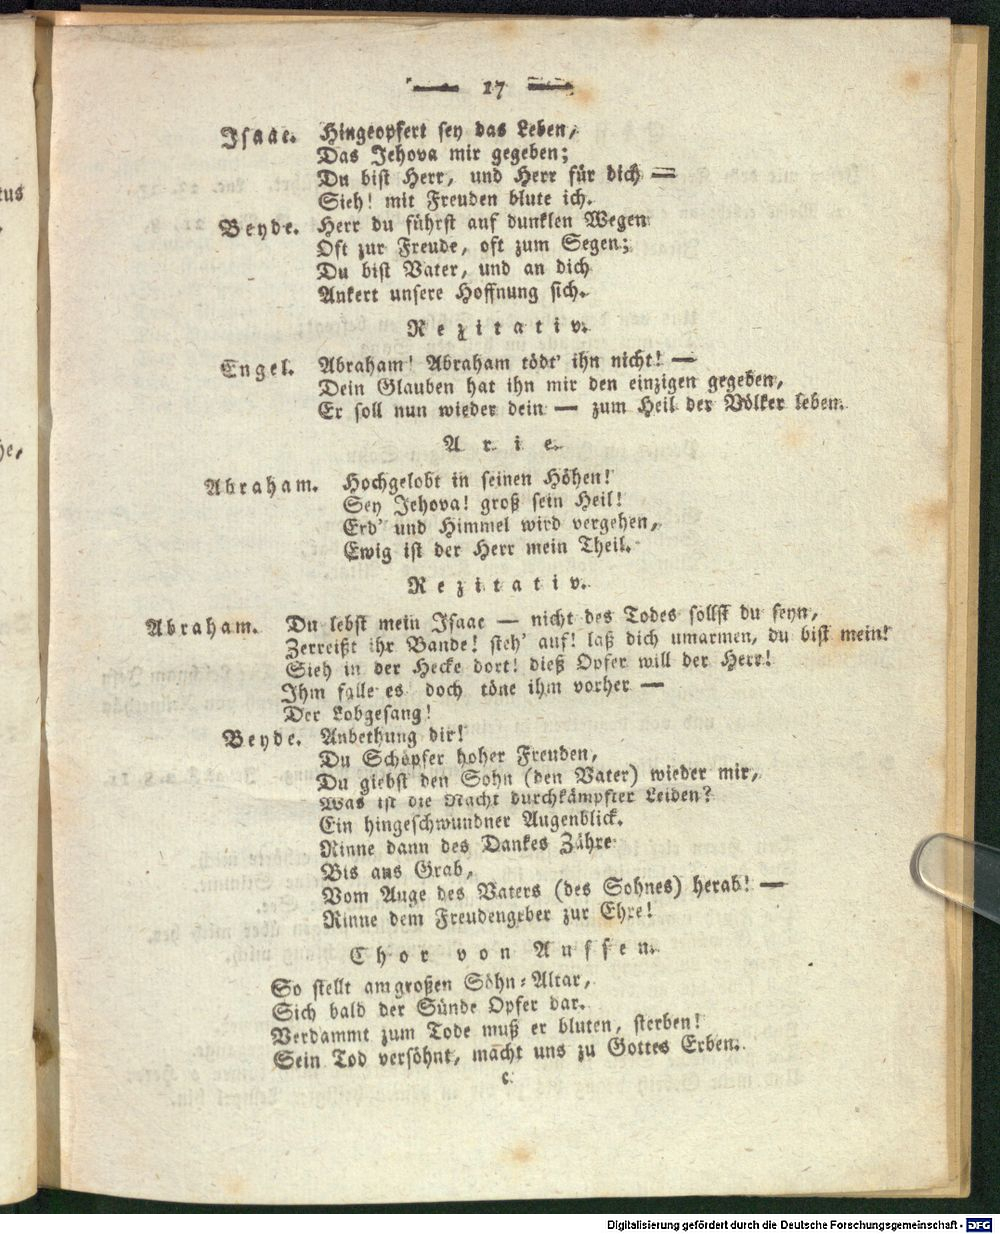 tus
he,
— 17 —
Isaac. Hingeopfert sey das Leben,
Das Jehova mir gegeben;
Du bist Herr, und Herr für dich —
Sieh! mit Freuden blute ich.
Beyde. Herr du führst auf dunklen Wegen
Oft zur Freude, oft zum Segen;
Du bist Vater, und an dich
Ankert unsere Hoffnung sich.
Rezitativ.
Engel. Abraham! Abraham tödt' ihn nicht! —
Dein Glauben hat ihn mir den einzigen gegeben,
Er soll nun wieder dein — zum Heil der Völker leben.
Arie.
Abraham. Hochgelobt in seinen Höhen!
Sey Jehova! groß sein Heil!
Erd' und Himmel wird vergehen,
Ewig ist der Herr mein Theil.
Rezitativ.
Abraham. Du lebst mein Isaac — nicht des Todes sollst du seyn,
Zerreißt ihr Bande! steh' auf! laß dich umarmen, du bist mein!
Sieh in der Hecke dort! dieß Opfer will der Herr!
Ihm falle es doch töne ihm vorher —
Der Lobgesang!
Beyde. Anbethung dir!
Du Schöpfer hoher Freuden,
Du giebst den Sohn (den Vater) wieder mir,
Was ist die Nacht durchkämpfter Leiden?
Ein hingeschwundner Augenblick.
Rinne dann des Dankes Zähre
Bis ans Grab,
Vom Auge des Vaters (des Sohnes) herab! —
Rinne dem Freudengeber zur Ehre!
Chor von Aussen.
So stellt am großen Söhn-Altar,
Sich bald der Sünde Opfer dar.
Verdammt zum Tode muß er bluten, sterben!
Sein Tod versöhnt, macht uns zu Gottes Erben.
c
Digitalisierung gefördert durch die Deutsche Forschungsgemeinschaft - DFG